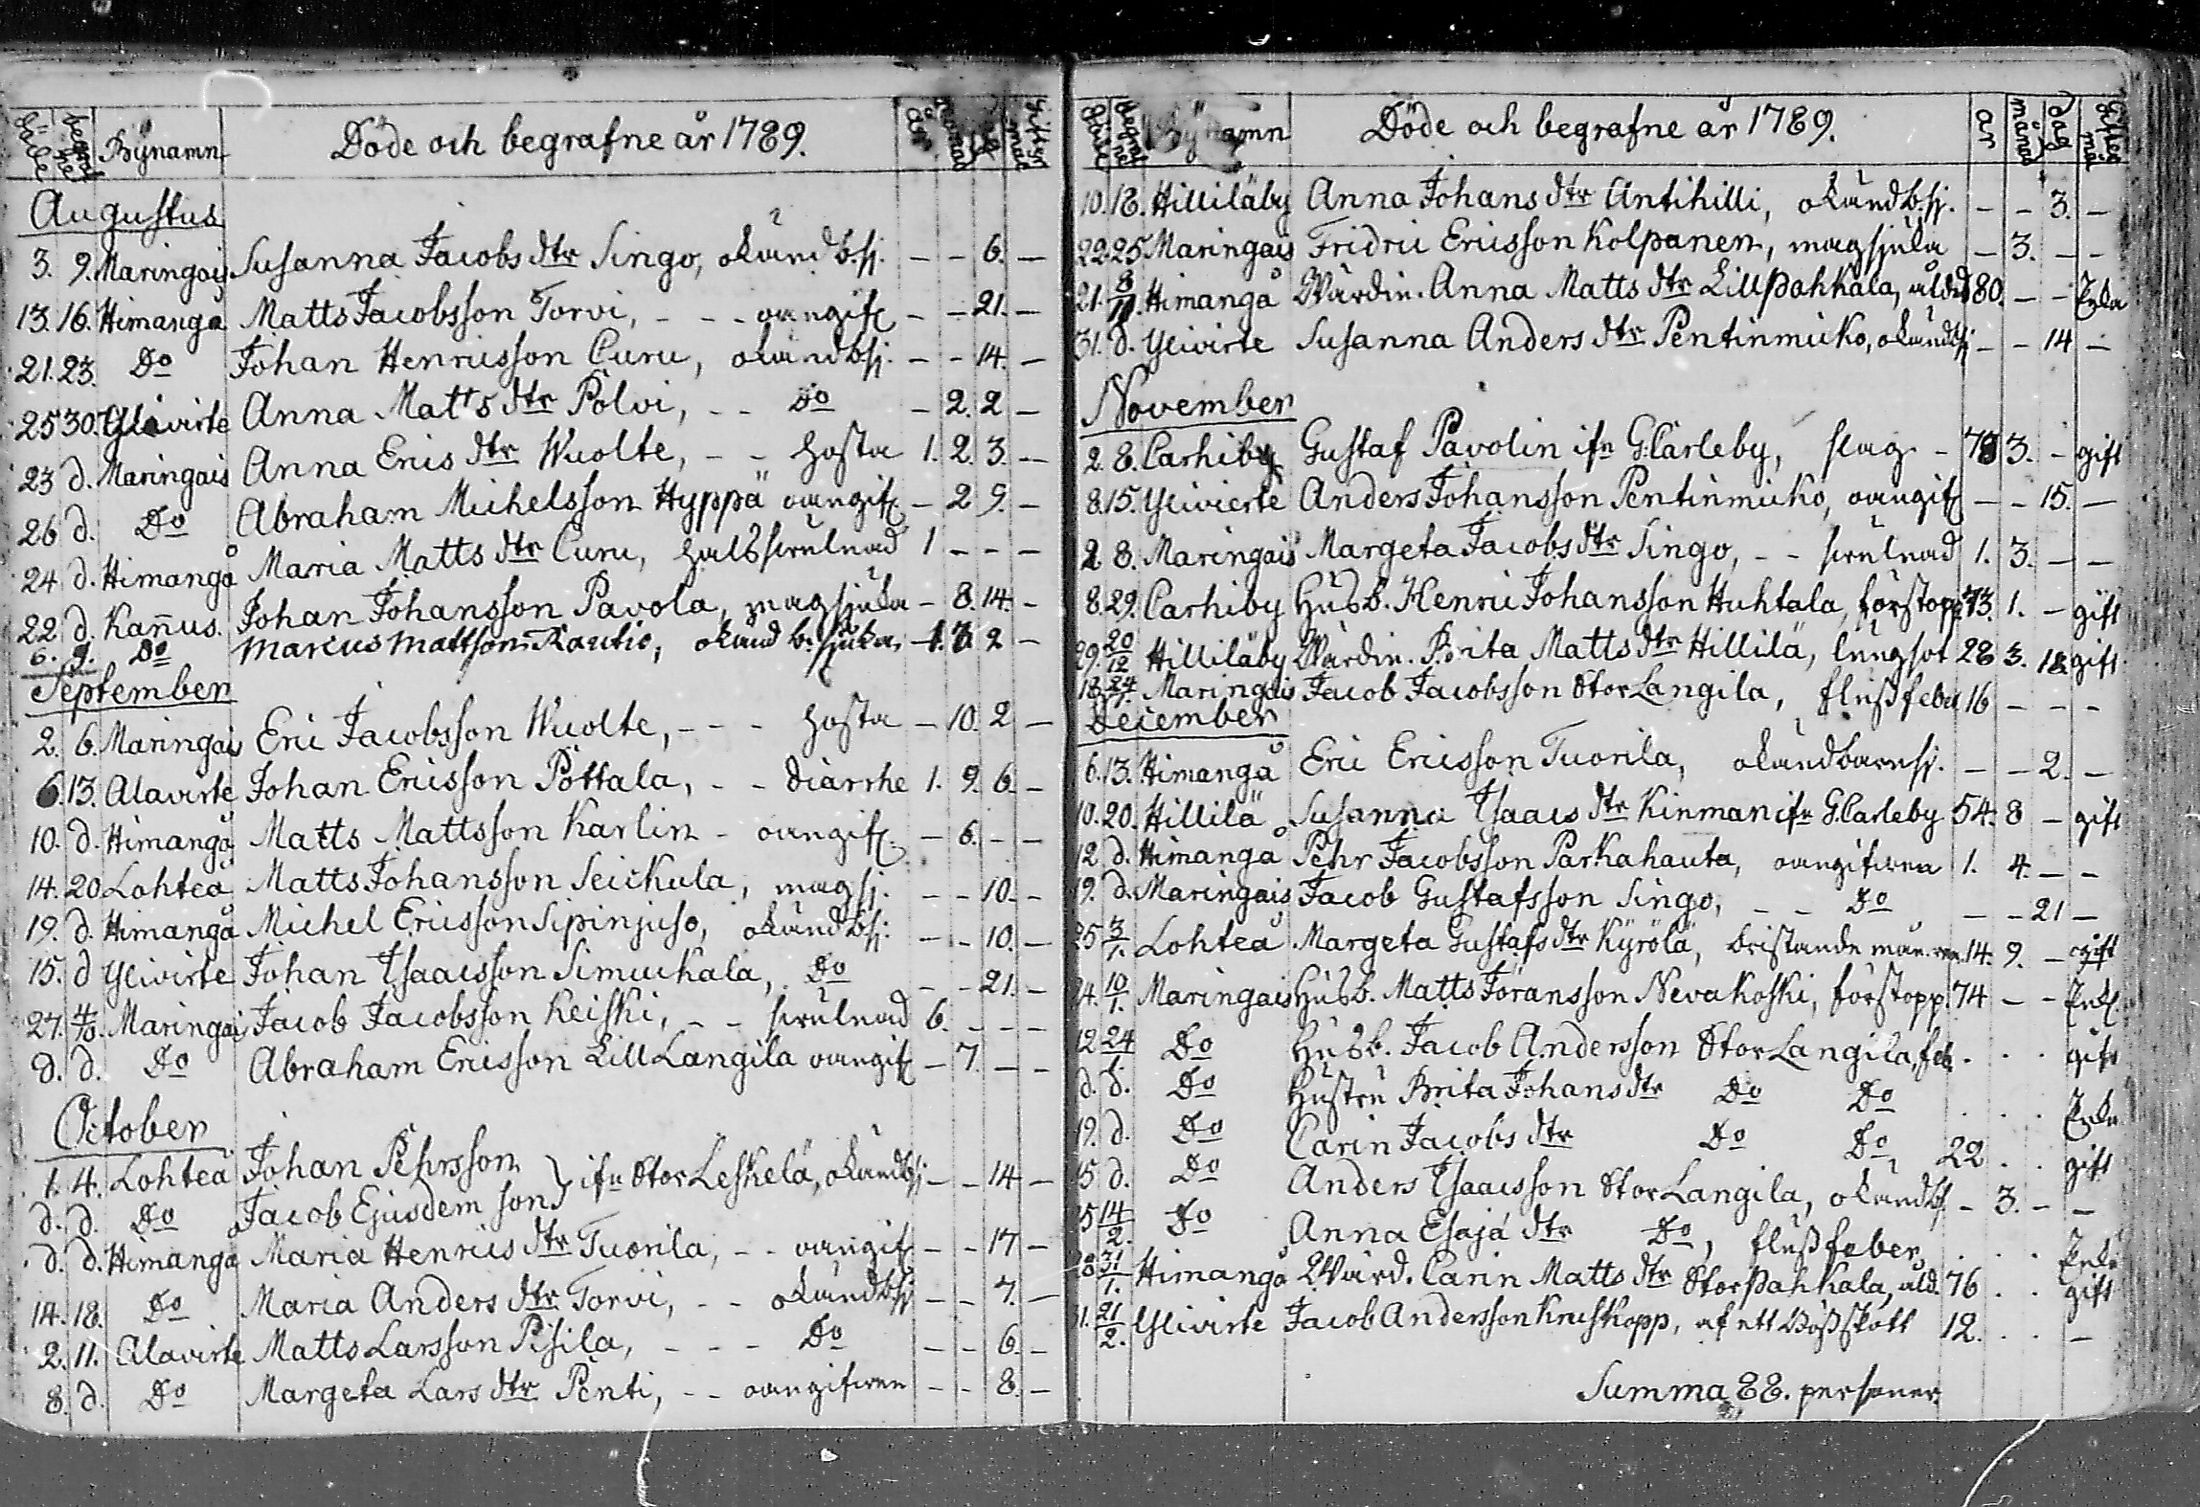 Döde begrafne Bÿnamn Döde och begrafne år 1789. år månad dag
Augustus
3. 9. Maringais Susanna Jacobs dtr Singo, okänd bsj. - - 6. -
13. 16. Himangå Matts Jacobsson Torvi, - - - oangif. - - 21. -
21. 23. Do Johan Henricsson Curu, okänd bsj. - - 14. -
25 30. Ylivirte Anna Matts dtr Polvi, - - Do - 2. 2 -
23 d. Maringais Anna Erics dtr Wuolte, - - hosta 1. 2. 3. -
26 d. Do Abraham Michelsson Hyppä oangif. - 2 9. -
24 d. Himangå Maria Matts dtr Curu, halssvulnad 1 - - -
22 d. Kan̄us. Johan Johansson Pavola, magsjuka - 8. 14. -
6. 9. Do Marcus Mattsson Rautio, okänd b. sjuka, - 1. 3 2 -
September
2. 6. Maringais Eric Jacobsson Wuolte, - - - hosta - 10. 2 -
6. 13. Alavirte Johan Ericsson Pöttala, - - diarrhe 1. 9. 6. -
10. d. Himangå Matts Mattsson Karlin - oangif. - 6. - -
14. 20 Lohteå Matts Johansson Seickula, magsj. - - 10. -
19. d. Himangå Michel Ericsson Sipinjuso, okänd bsj. - - 10. -
15. d Ylivirte Johan Isaacsson Simuckala, Do - - 21. -
27. 4/10. Maringais Jacob Jacobsson Keiski, - - svulnad 6. - - -
d. d. Do Abraham Ericsson Lill Langila oangif - 7. - -
October
1. 4. Lohteå Johan Pehrsson } ifn Stor Leskelä, okänd bsj - - 14 -
d. d. Do Jacob Ejusdem son
d. d. Himangå Maria Henrics dtr Tuorila, - - oangif - - 17 -
14. 18. Do Maria Anders dtr Torvi, - - okänd bsj - - 7. -
2. 11. Alavirte Matts Larsson Pisila, - - - Do - - 6. -
8. d. Do Margeta Lars dtr Penti, - - oangifven - - 8. -
Döde begrafne Bÿnamn Döde och begrafne år 1789. år månad dag
10. 18. Hilliläby Anna Johans dtr Antihilli, okänd bsj. - - 3. -
22. 25 Maringais Fridric Ericsson Kolpanen, magsjuka - 3. - -
21. 8/11. Himangå Wärdin. Anna Matts dtr Lillpahkala, ålder 80. - - Enka
31. d. Ylivirte Susanna Anders dtr Pentinmicko, okänd bsj - - 14 -
November
2. 8. Carhiby Gustaf Pavolin ifn G:Carleby, slag - 78 3. - gift
8. 15. Ylivierte Anders Johansson Pentinmicko, oangif - - 15. -
2 8. Maringais Margeta Jacobs dtr Singo, - - svulnad 1. 3. - -
8. 29. Carhiby Husb. Henric Johansson Huhtala, förstopp. 73. 1. - gift
29. 20/12 Hilliläby Wärdin. Brita Matts dtr Hillilä, lungsot 28 3. 18. gift
18. 24/1. Maringais Jacob Jacobsson Stor Langila, flussfeber 16 - - -
December
6. 13. Himangå Eric Ericsson Tuorila, okänd barnsj. - - 2. -
10. 20. Hillilä Susanna Isaacs dtr Kinman ifn G.Carleby 54. 8 - gift
12. d. Himangå Pehr Jacobsson Parkahauta, oangifven 1. 4. - -
9. d. Maringais Jacob Gustafsson Singo, - - Do - - 21 -
25 3/1. Lohteå Margeta Gustafs dtr Kyrölä, 14. 9. -
24. 10/1. Maringais Husb. Matts Jöransson Nevakoski, förstopp. 74 - - Enkl.
12 24/1 Do Husb. Jacob Andersson Stor Langila, feb. . . . gift
d. d. Do Hustru Brita Johans dtr Do Do . . . Enka
19. d. Do Carin Jacobs dtr Do Do 22 . . gift
15 d. Do Anders Isaacsson Stor Langila, okänd bsj - 3. - -
25 14/2. Do Anna Esajæ dtr Do, flussfeber, . . . Enka
28 31/1. Himangå Wärd. Carin Matts dtr Storpahkala, åld. 76 . . gift
21/2. Ylivirte Jacob Andersson Kniskopp, af ett Bösskott 12. . . -
Summa 88. personer.